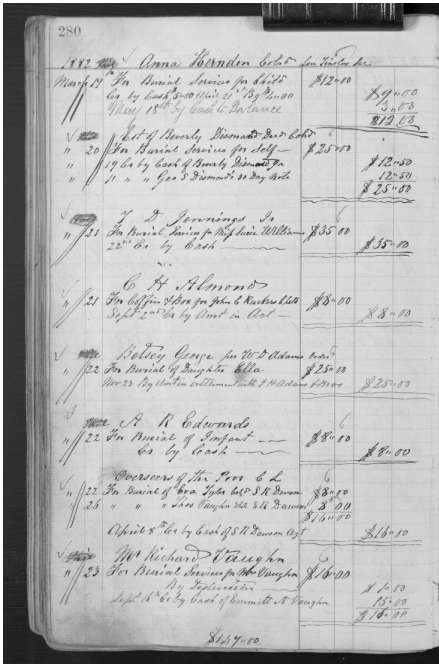 280
1882 Anna Herndon Cold
March 19th For Burial Services for Child $12"00
Cr by Cash 5"00 April 21st By 4"00 $9"00
May 18th by Cash to Balance 3"00
$12"00
Est of Beverly Dismond Decd Cold
" 20 For Burial Services for Self $25"00
" 19 Cr by Cash of Beverly Dismond $12"50
" " " Geo S Dismond's 30 Day Note 12"50
$25"00
T D Jennings Jr
" 21 For Burial Services for Miss Williams $35"00
22nd Cr by Cash $35"00
C H Almond
" 21 For Coffin & Box for John C $8"00
Sept 2nd Cr by Amt in Act $8"00
Betsey George per W D Adams order
" 22 For Burial of Daughter Ella $25"00
Nov 23 By Amt in settlement with Adams $25"00
A R Edwards
" 22 For Burial of Infant $8"00
Cr by Cash $8"00
Overseers of the Poor C L
" 22 For Burial of Eva Tyler Cold S R Dawson $8"00
" 26 " " " Thos Vaughn S R Dawson 8"00
$16"00
April 8th Cr by Cash of S R Dawson Agt $16"00
Mr Richard Vaughn
" 23 For Burial Services for Vaughn $16"00
By $1"00
Sept 16th Cr by Cash of Emmitt A Vaughn 15"00
$16"00
$147"00